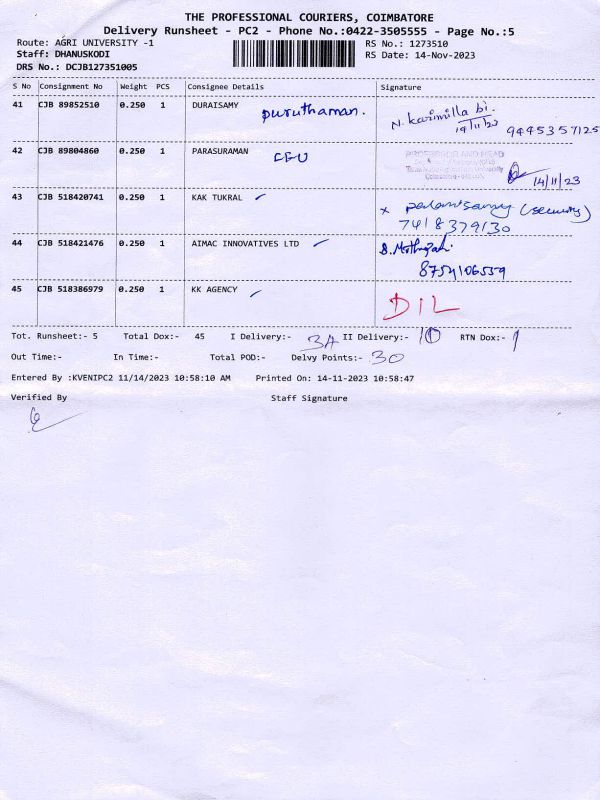 THE PROFESSIONAL COURIERS, COIMBATORE
Delivery Runsheet - PC2 - Phone No.:0422-3505555 - Page No.:5
Route: AGRI UNIVERSITY -1 RS No.: 1273510
Staff: DHANUSKODI RS Date: 14-Nov-2023
DRS No.: DCJB127351005
S No Consignment No Weight PCS Consignee Details Signature
41 CJB 89852510 0.250 1 DURAISAMY puruthaman. N. Karimilla bi.
14/11/23 9445357125
42 CJB 89804860 0.250 1 PARASURAMAN PROFESSOR AND HEAD
14/11/23
43 CJB 518420741 0.250 1 KAK TUKRAL x (security)
7418379130
44 CJB 518421476 0.250 1 AIMAC INNOVATIVES LTD
8754106559
45 CJB 518386979 0.250 1 KK AGENCY DIL
Tot. Runsheet:- 5 Total Dox:- 45 I Delivery:- II Delivery:- 10 RTN Dox:- 1
Out Time:- In Time:- Total POD:- Delvy Points:- 30
Entered By :KVENIPC2 11/14/2023 10:58:10 AM Printed On: 14-11-2023 10:58:47
Verified By Staff Signature